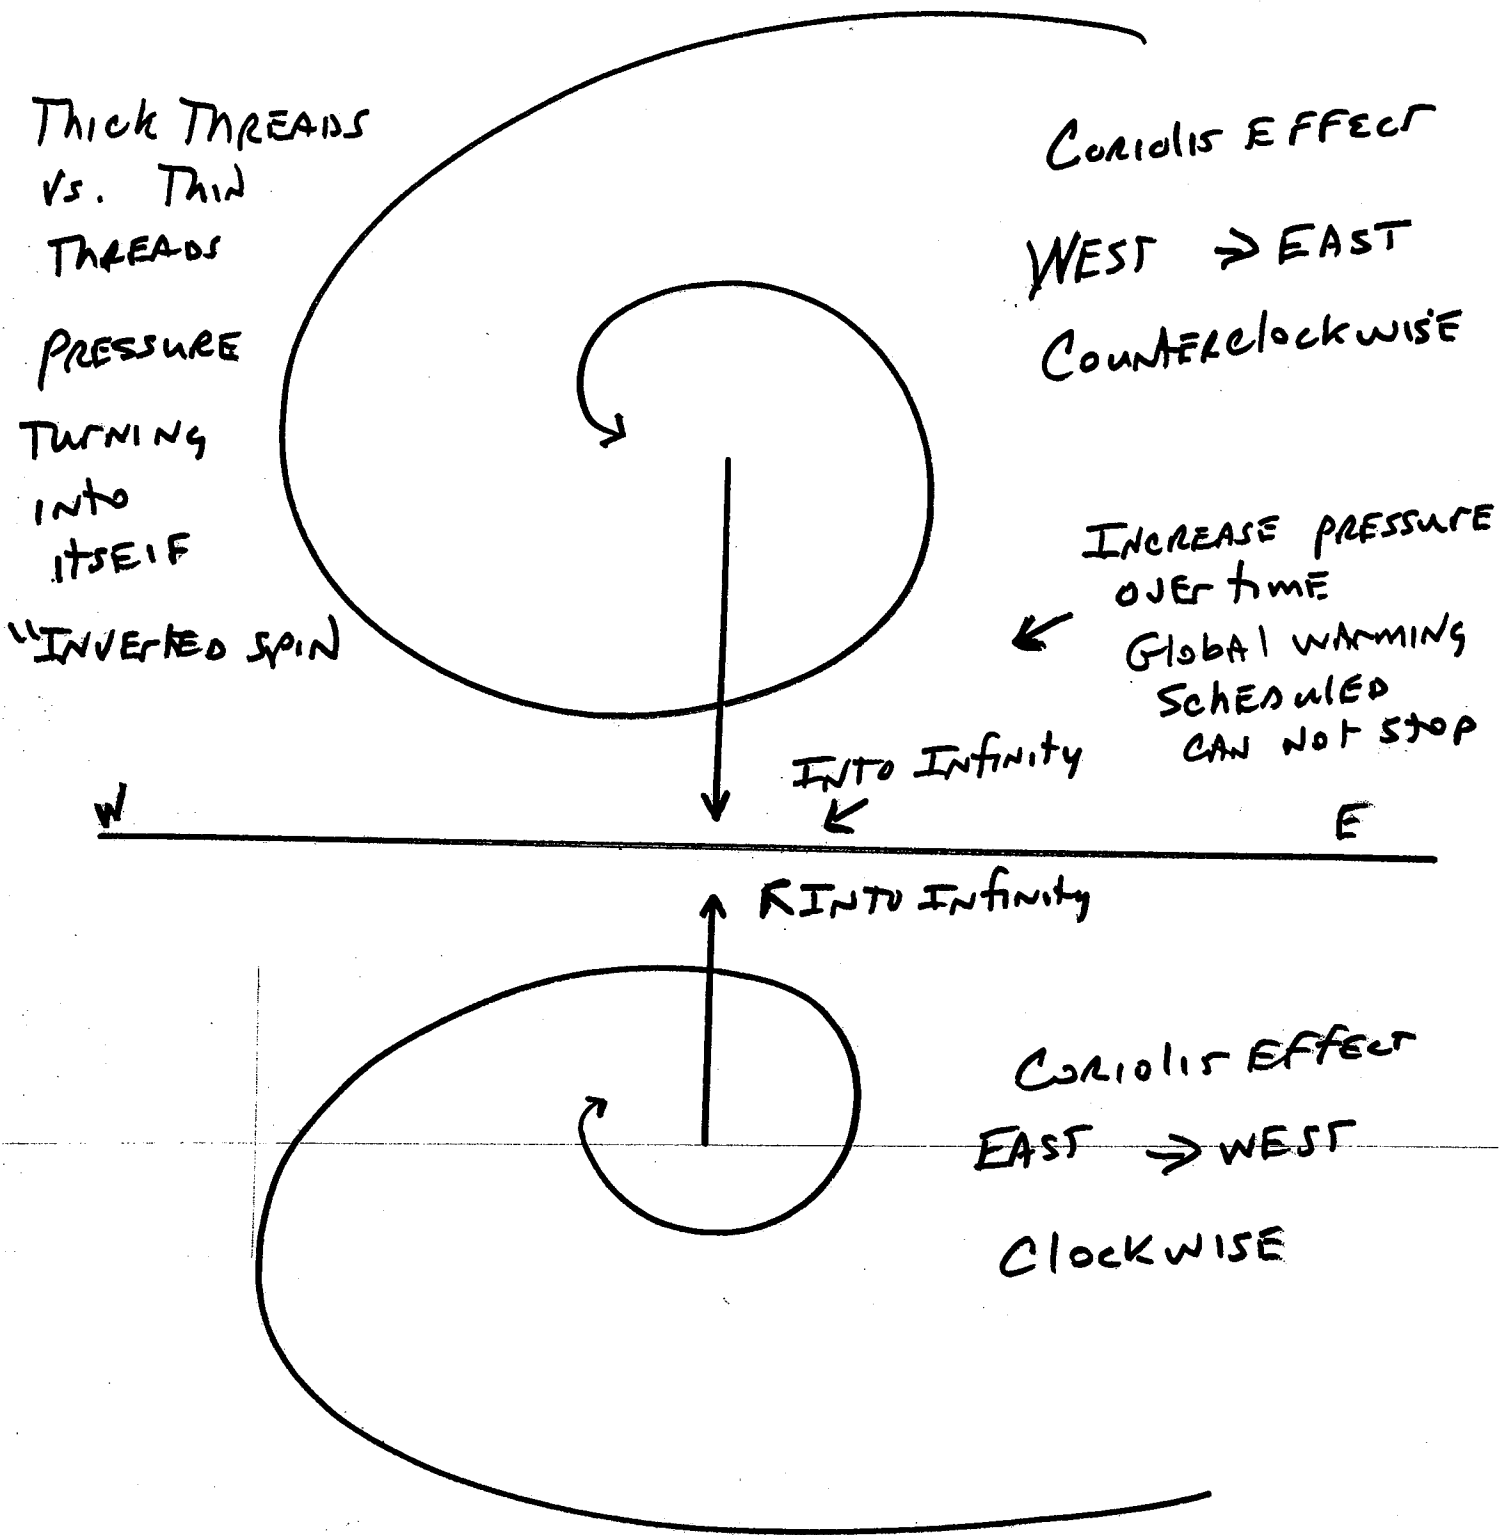 Thick THREADS
vs. Thin
THREADS
PRESSURE
TURNING
INTO
ITSElF
"INVERTED SPIN
CORIOlIS EFFECT
WEST → EAST
COUNTERClockWISE
INCREASE PRESSURE
OVER TIME
GlobAl WARMING
SChEDulED
CAN NOT STOP
INTO INfiNity
W
E
INTO INfiNity
CORIOlIS EFfECT
EAST → WEST
ClockWISE